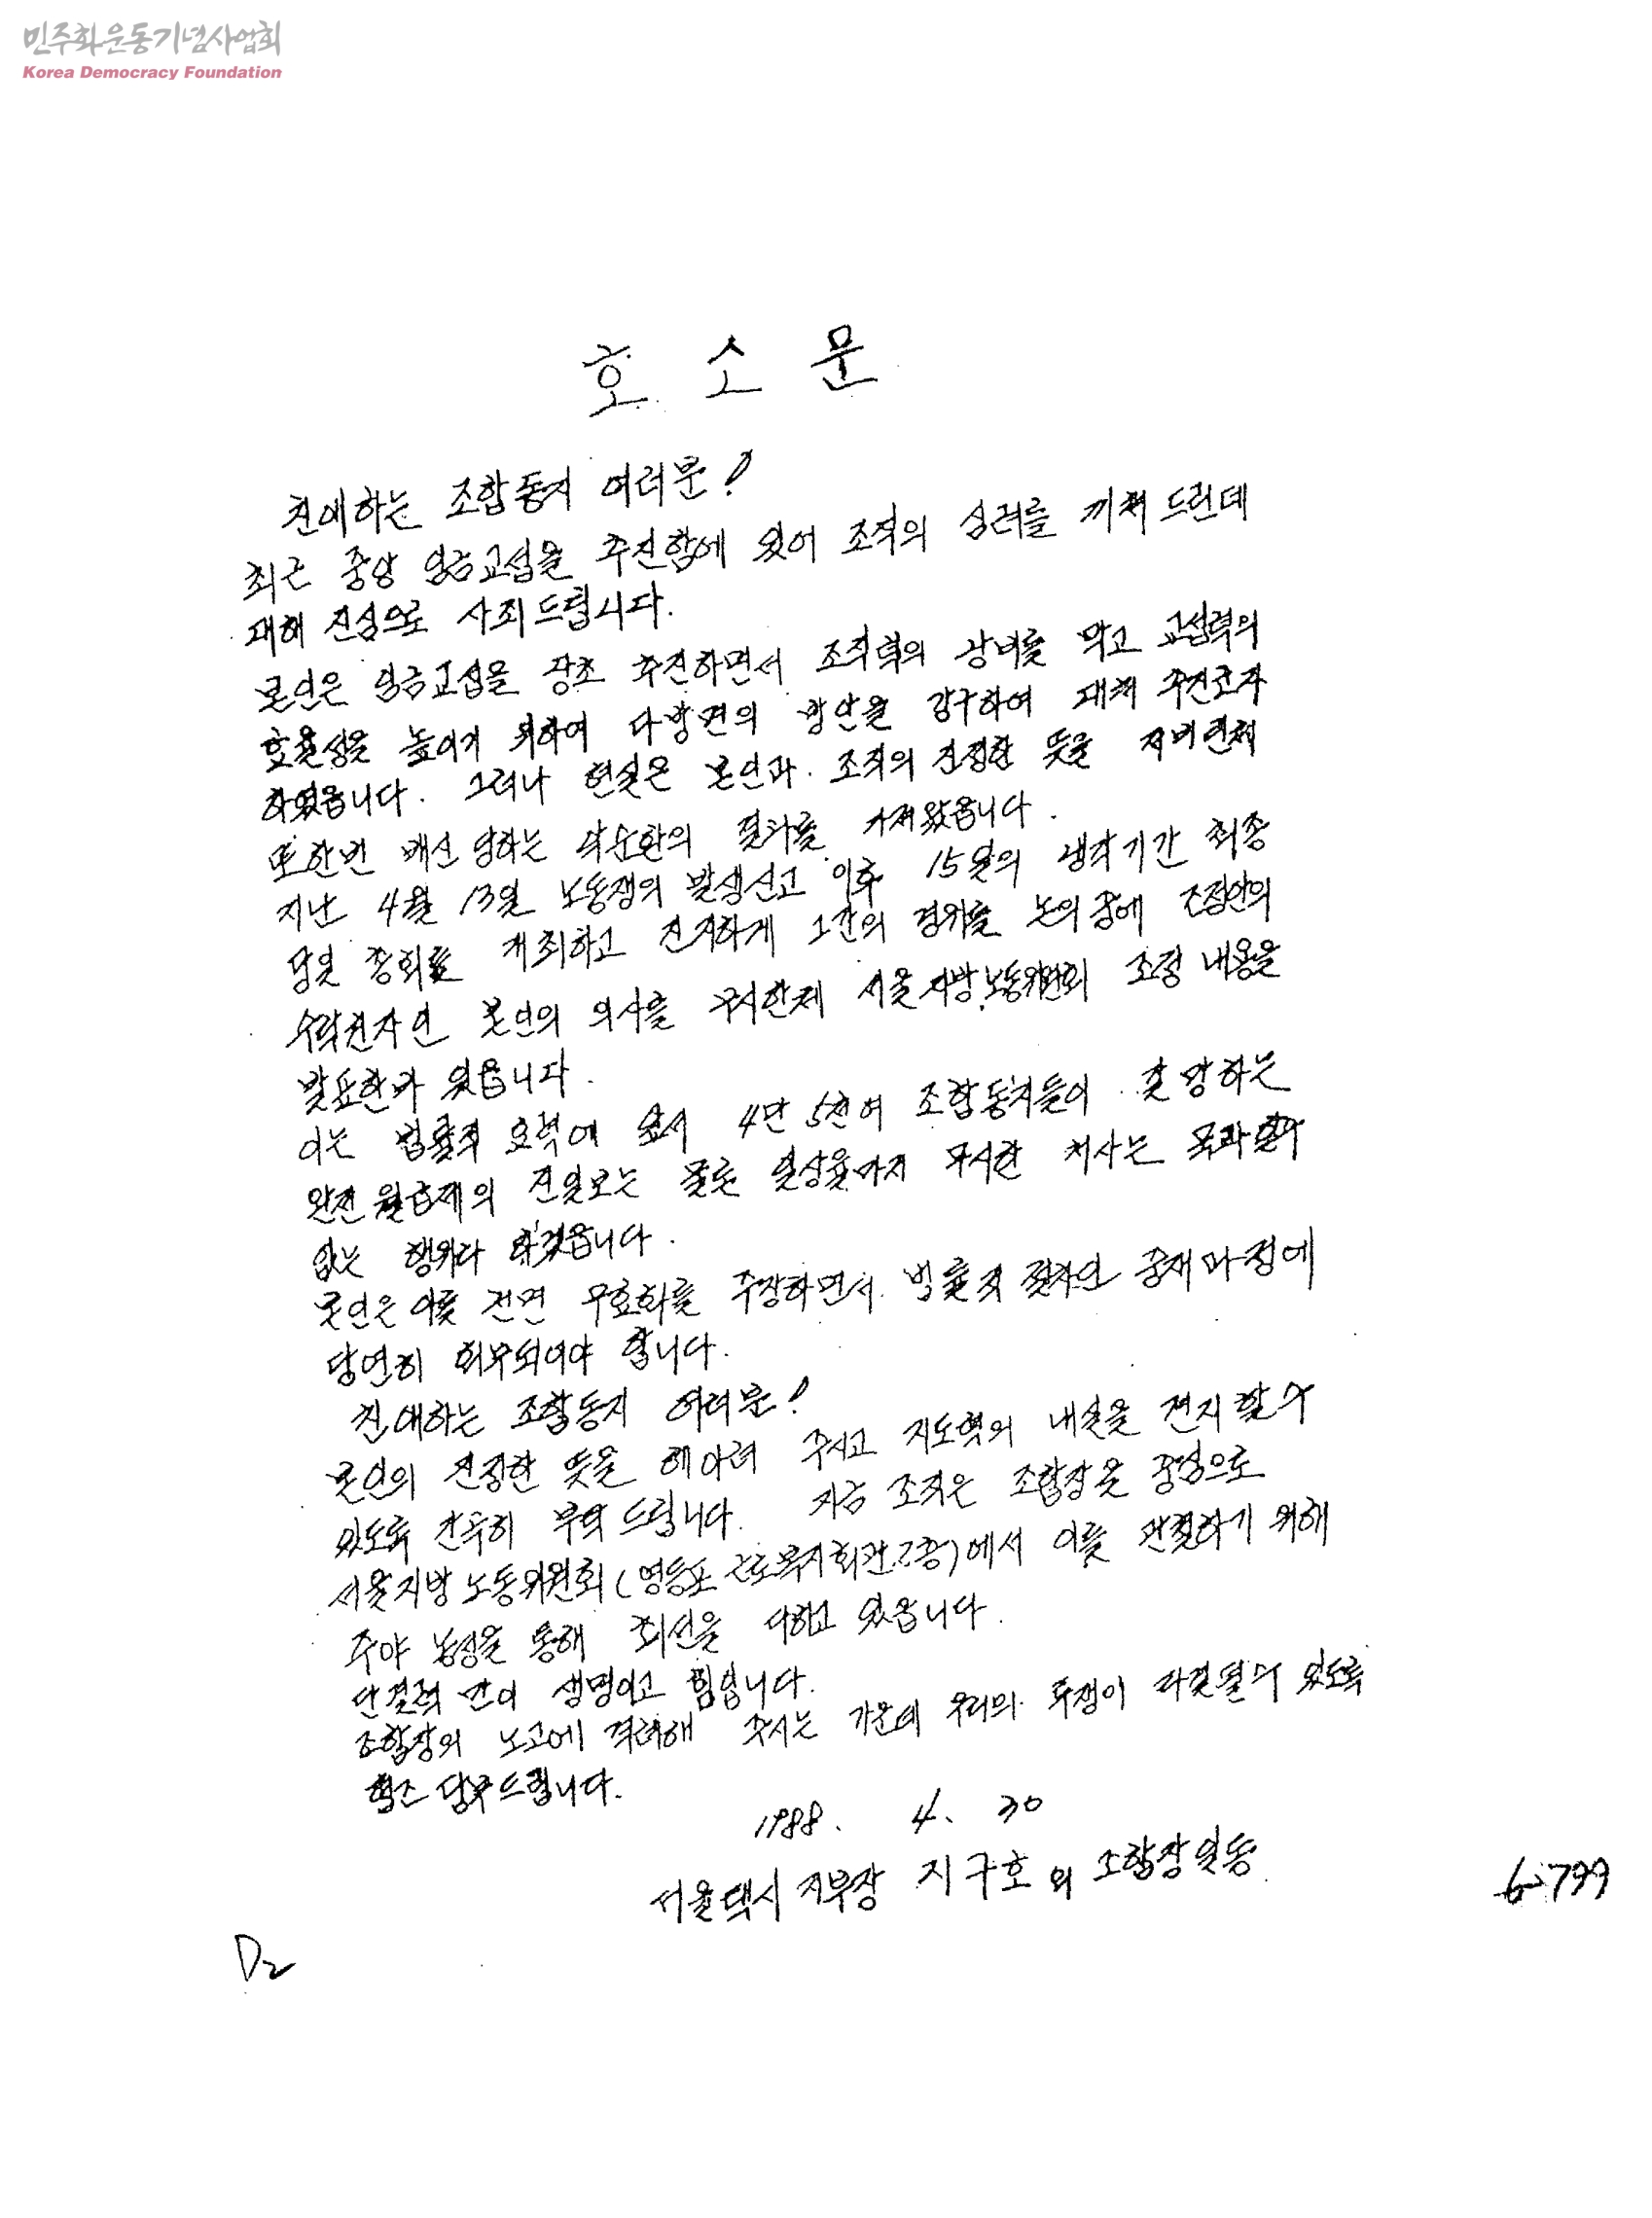 민주화운동기념사업회
Korea Democracy Foundation
호 소 문
친애하는 조합동지 여러분!
최근 중앙 임금교섭을 추진함에 있어 조직의 심려를 끼쳐 드린데
대해 진심으로 사죄드립니다.
본인은 임금교섭을 당초 추진하면서 조직력의 낭비를 막고 교섭력의
효율성을 높이기 위하여 다방면의 방안을 강구하여 대책 추진코자
하였읍니다. 그러나 현실은 본인과 조직의 진정한 뜻을 저버린채
또한번 배신 당하는 악순환의 결과를 가져왔읍니다.
지난 4월 13일 노동쟁의 발생신고 이후 15일의 냉각기간 최종
당일 총회를 개최하고 진지하게 그간의 경위를 논의중에 조정안의
수락권자인 본인의 의사를 무시한채 서울지방노동위원회 조정 내용을
발표한바 있읍니다.
이는 법률적 효력에 앞서 4만 5천여 조합동지들이 갈망하는
완전월급제의 진일보는 물론 인상율마저 무시한 처사는 묵과할수
없는 행위라 하겠읍니다.
본인은 이를 전면 무효화를 주장하면서 법률적 절차인 중재과정에
당연히 회부되어야 합니다.
친애하는 조합동지 여러분!
본인의 진정한 뜻을 헤아려 주시고 지도력의 내실을 견지할수
있도록 간곡히 부탁 드립니다. 지금 조직은 조합장을 중심으로
서울지방노동위원회(영등포 근로복지회관 2층)에서 이를 관철하기 위해
주야 농성을 통해 최선을 다하고 있읍니다.
단결력 만이 생명이고 힘입니다.
조합장의 노고에 격려해 주시는 가운데 우리의 투쟁이 타결될수 있도록
협조 당부드립니다.
1988. 4. 30
서울택시 지부장 지구호 외 조합장일동
6-799
D2